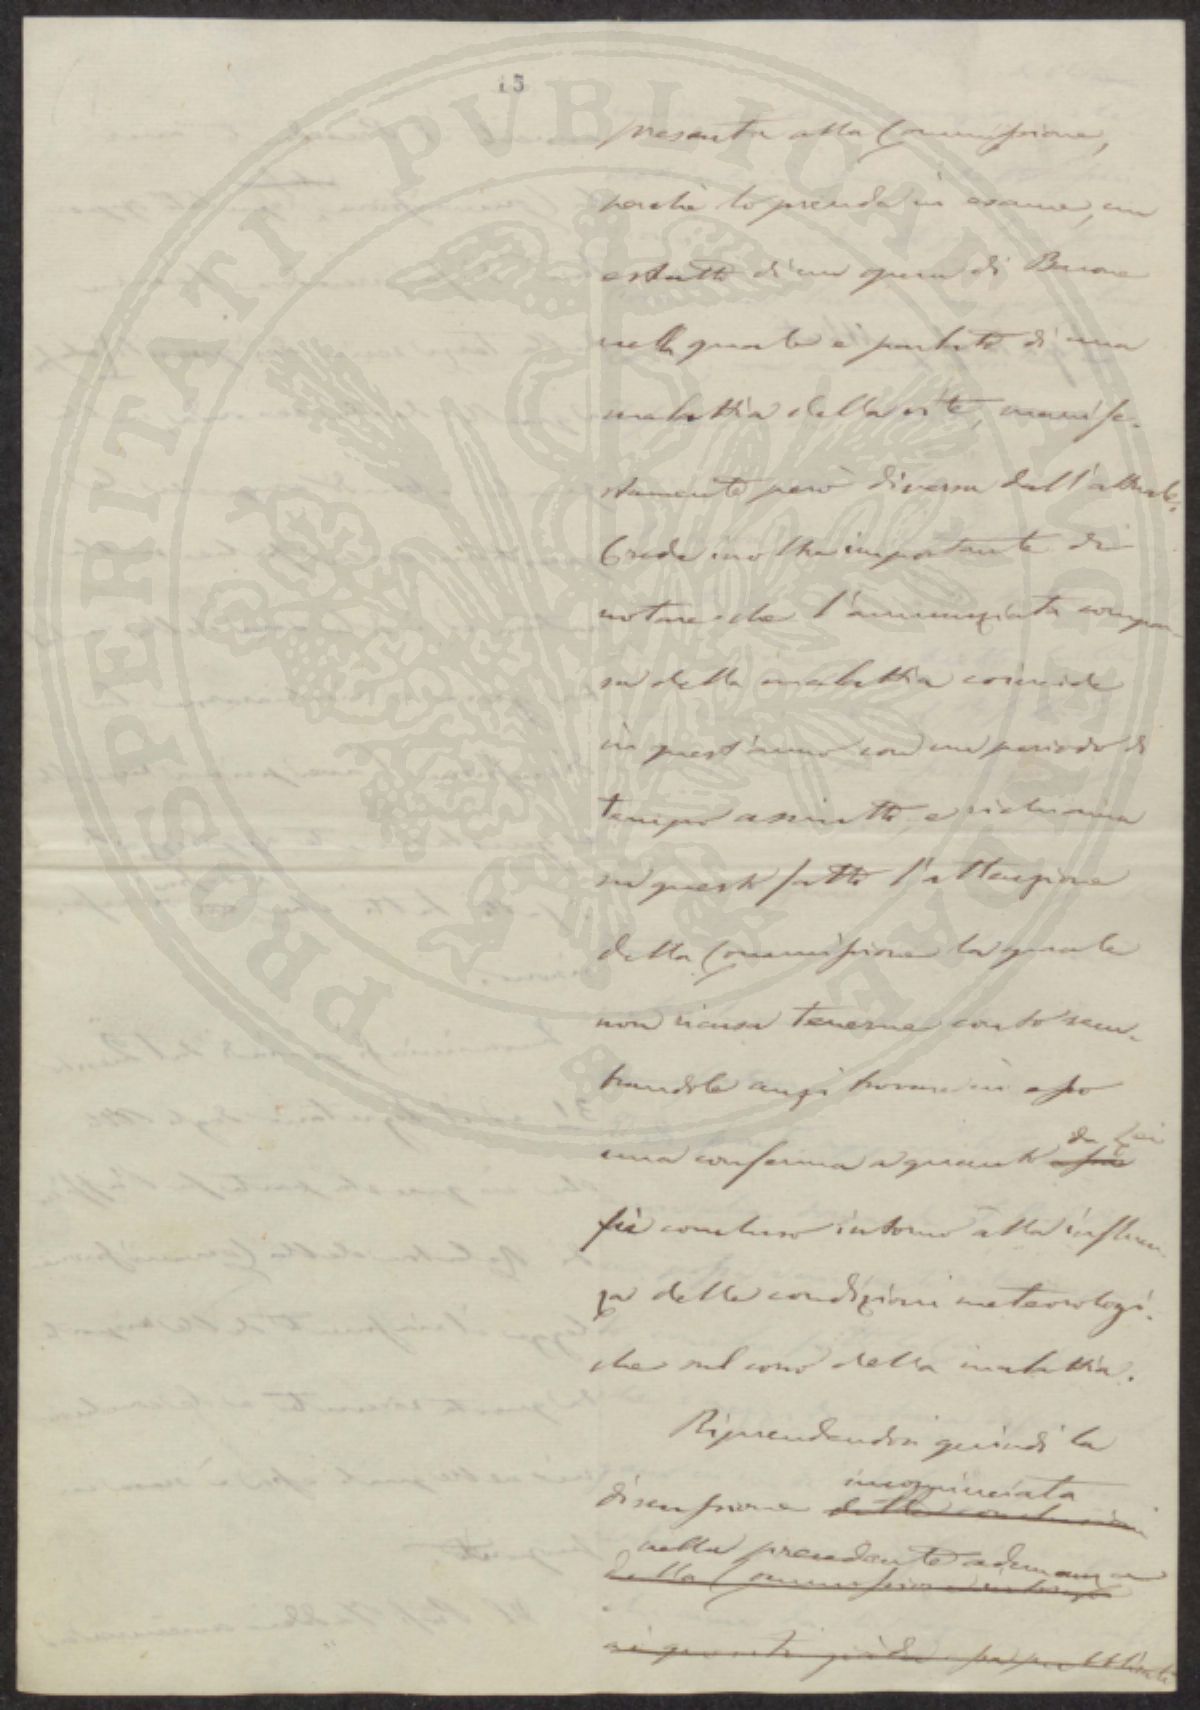 15
PROSPERITATI PUBLICAE AUGENDAE
presenta alla Commissione,
perchè lo prenda in esame, un
estratto di un opera di
nella quale è parlato di una
malattia della vite, manife-
stamente però diversa dall'attuale.
Crede inoltre importante di
notare che l'annunziata compar-
sa della malattia coincide
in quest'anno con un periodo di
tempo asciutto, e richiama
su questo fatto l'attenzione
della Commissione la quale
non ricusa tenerne conto sem-
brandole anzi trovare in esso
da Lei
una conferma a quanto
fù concluso intorno alla influen-
za delle condizioni meteorologi-
che sul corso della malattia.
Riprendendosi quindi la
incominciata
discussione delle conclusioni
nella precedente adunanza
della Commissione intorno